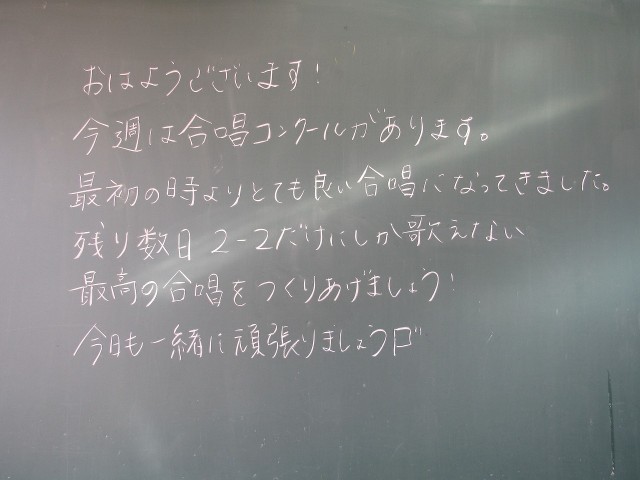 おはようございます!
今週は合唱コンクールがあります。
最初の時よりとても良い合唱になってきました。
残り数日 2-2だけにしか歌えない
最高の合唱をつくりあげましょう!
今日も一緒に頑張りましょう